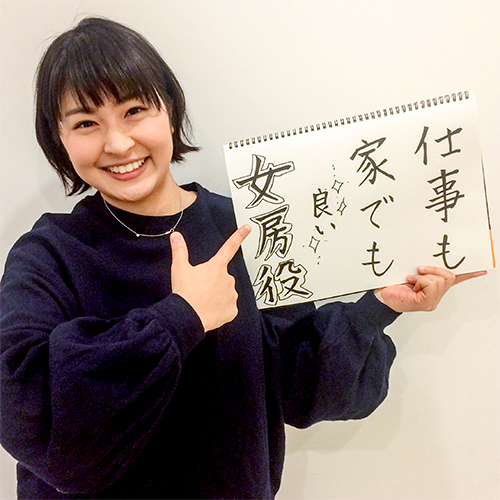 仕事も
家でも
良い
女房役